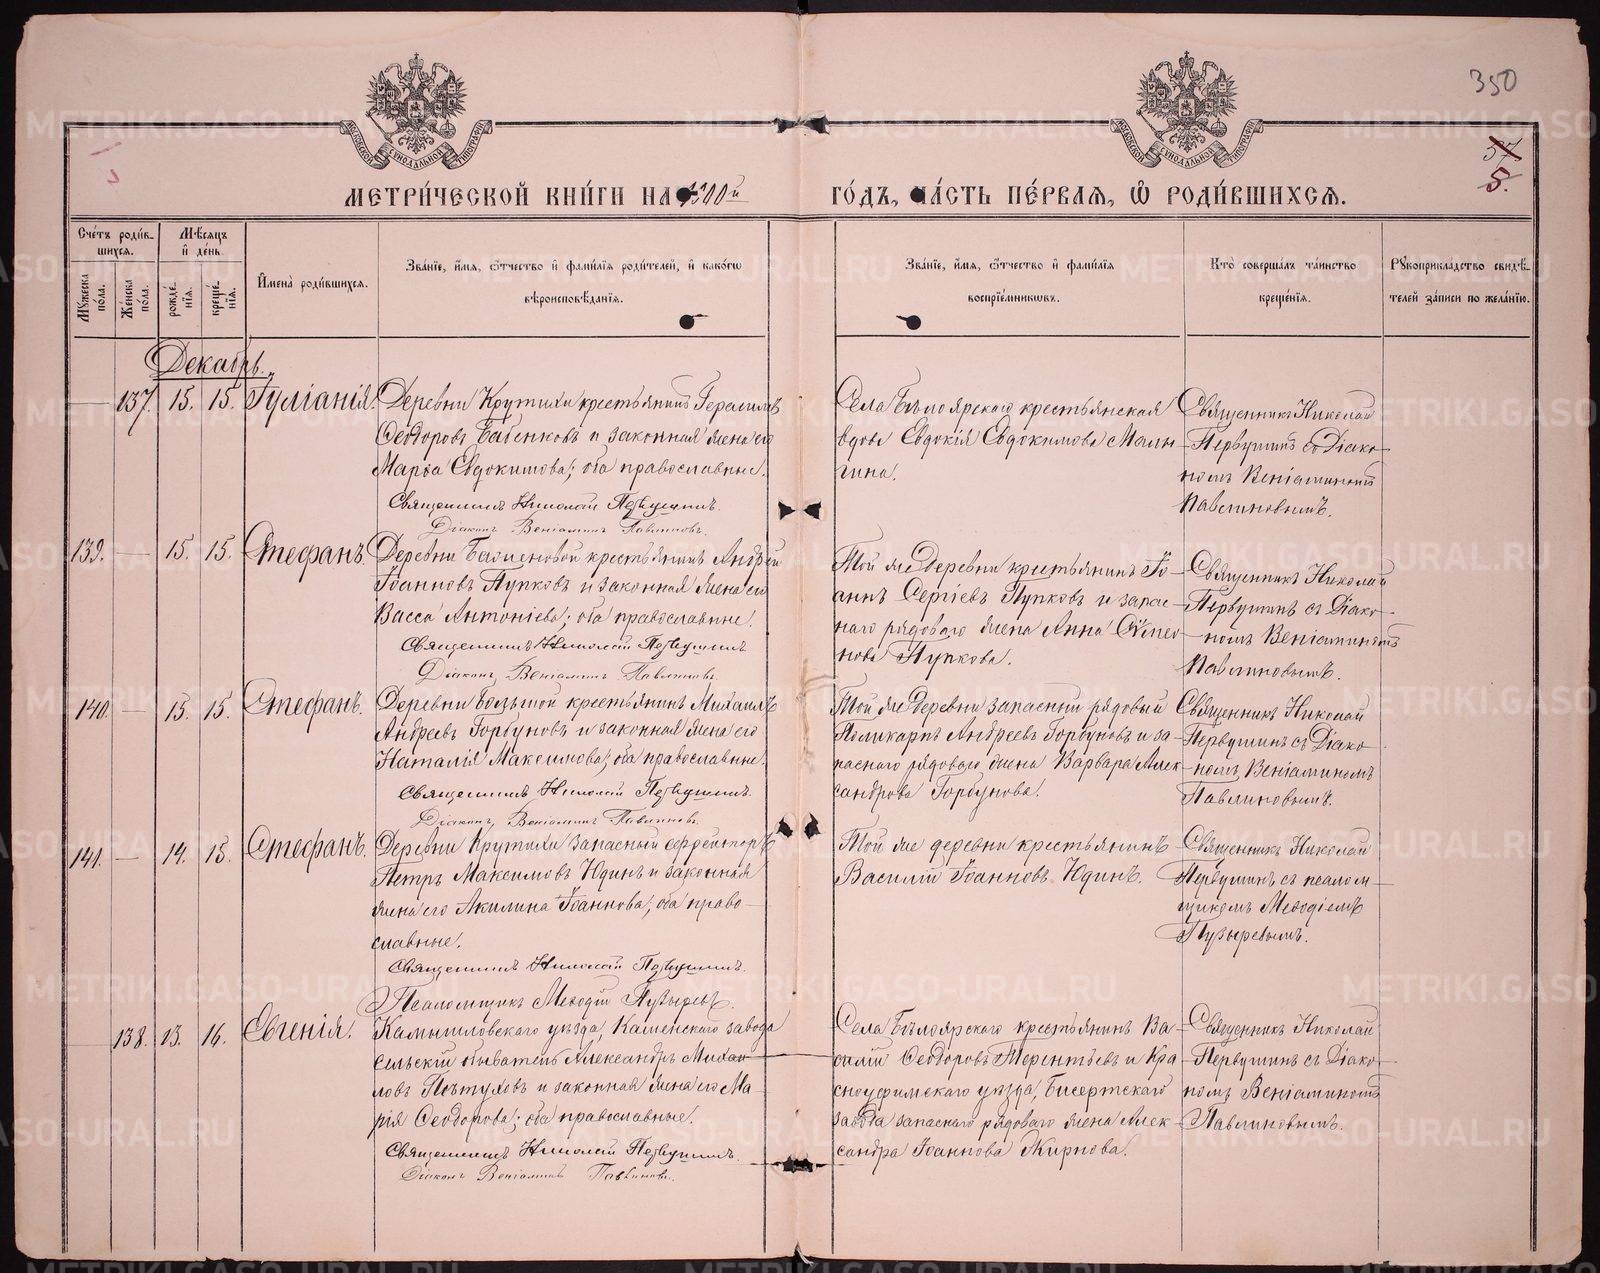 350
57
5.
МОСКОВСКОЙ СѴНОДАЛЬНОЙ ТИПОГРАФІИ
МОСКОВСКОЙ СѴНОДАЛЬНОЙ ТИПОГРАФІИ
МЕТРИ́ЧЕСКОЙ КНИ́ГИ НА 1900й ГО́ДЪ, ЧА́СТЬ ПЕ́РВАЯ, Ѡ҆ РОДИ́ВШИХСЯ.
Сче́тъ роди́в-
шихся.
Му́жеска по́ла.
Же́нска по́ла.
Мѣ́сяцъ
и҆ де́нь.
рожде́-
нїя.
креще́-
нїя.
И҆мена̀ роди́вшихся.
Зва́нїе, и҆́мя, ѻ҆́тчество и҆ фами́лїя роди́телей, и҆ како́гѡ
вѣроисповѣ́данїя.
Зва́нїе, и҆́мя, ѻ҆́тчество и҆ фами́лїя
воспрїе́мниковъ.
Кто̀ соверша́лъ та́инство
креще́нїя.
Рꙋкоприкла́дство свидѣ́-
телей за́писи по жела́нїю.
Декабрь.
137. 15. 15. Іуліанія.
Деревни Крутихи крестьянинъ Герасимъ
Ѳеодоровъ Бабенковъ и законная жена его
Марѳа Евдокимова; оба православные.
Священникъ Николай Первушинъ.
Діаконъ Веніаминъ Павлиновъ.
Села Бѣлоярскаго крестьянская
вдова Евдокія Евдокимова Малы-
гина.
Священникъ Николай
Первушинъ съ Діако-
номъ Веніаминомъ
Павлиновымъ.
139. 15. 15. Стефанъ.
Деревни Баженовой крестьянинъ Андрей
Іоанновъ Пупковъ и законная жена его
Васса Антоніева; оба православные.
Священникъ Николай Первушинъ
Діаконъ Веніаминъ Павлиновъ.
Той же деревни крестьянинъ Іо-
аннъ Сергіевъ Пупковъ и запас-
наго рядоваго жена Анна Сѵмео-
нова Пупкова.
Священникъ Николай
Первушинъ съ Діако-
номъ Веніаминомъ
Павлиновымъ.
140. 15. 15. Стефанъ.
Деревни Большой крестьянинъ Михаилъ
Андреевъ Горбуновъ и законная жена его
Наталія Максимова; оба православные.
Священникъ Николай Первушинъ.
Діаконъ Веніаминъ Павлиновъ.
Той же деревни запасный рядовый
Поликарпъ Андреевъ Горбуновъ и за-
паснаго рядоваго жена Варвара Алек-
сандрова Горбунова.
Священникъ Николай
Первушинъ съ Діако-
номъ Веніаминомъ
Павлиновымъ.
141. 14. 15. Стефанъ.
Деревни Крутихи запасный ефрейторъ
Петръ Максимовъ Юдинъ и законная
жена его Акилина Іоаннова; оба право-
славные.
Священникъ Николай Первушинъ.
Псаломщикъ Меѳодій Пузыревъ.
Той же деревни крестьянинъ
Василій Іоанновъ Юдинъ.
Священникъ Николай
Первушинъ съ псалом-
щикомъ Меѳодіемъ
Пузыревымъ.
138. 13. 16. Евгенія.
Камышловскаго уѣзда, Каменскаго завода
сельскій обыватель Александръ Михаи-
ловъ Пѣтуховъ и законная жена его Ма-
рія Ѳеодорова; оба православные.
Священникъ Николай Первушинъ.
Діаконъ Веніаминъ Павлиновъ.
Села Бѣлоярскаго крестьянинъ Ва-
силій Ѳеодоровъ Терентьевъ и Кра-
сноуфимскаго уѣзда, Бисертскаго
завода запаснаго рядоваго жена Алек-
сандра Іоаннова Жирнова.
Священникъ Николай
Первушинъ съ Діако-
номъ Веніаминомъ
Павлиновымъ.
METRIKI.GASO-URAL.RU